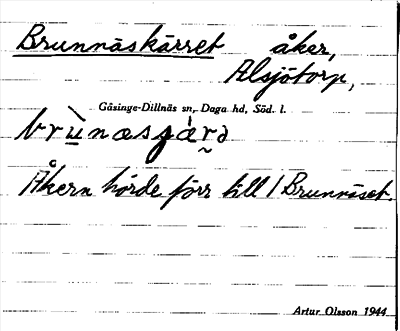 Brunnäskärret åker,
Alsjötorp,
Gåsinge-Dillnäs sn, Daga hd, Söd. l.
Åkern hörde förr till / Brunnäset.
Artur Olsson 1944